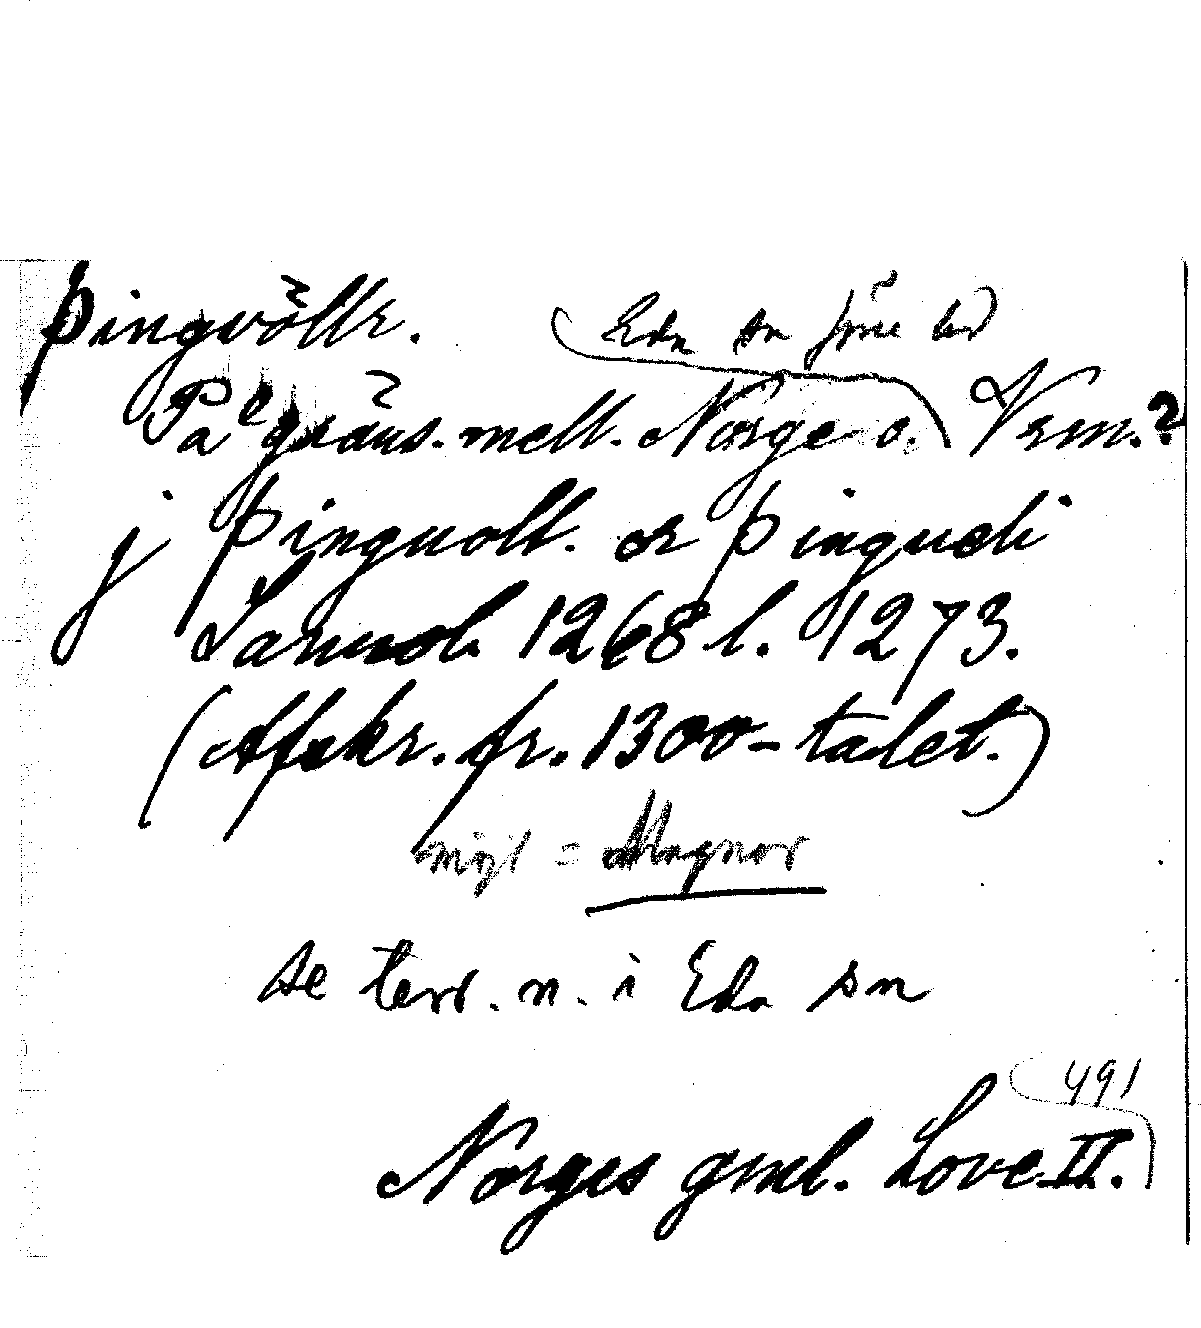 Þingvöllr.
Eda sn
På gräns. mell. Norge o. Verm.?
j þinguoll. er þingueli
1268 l. 1273.
(Afskr. fr. 1300-talet.)
möjl =
se terr. n. i Eda sn
491
Norges gml. Love II.